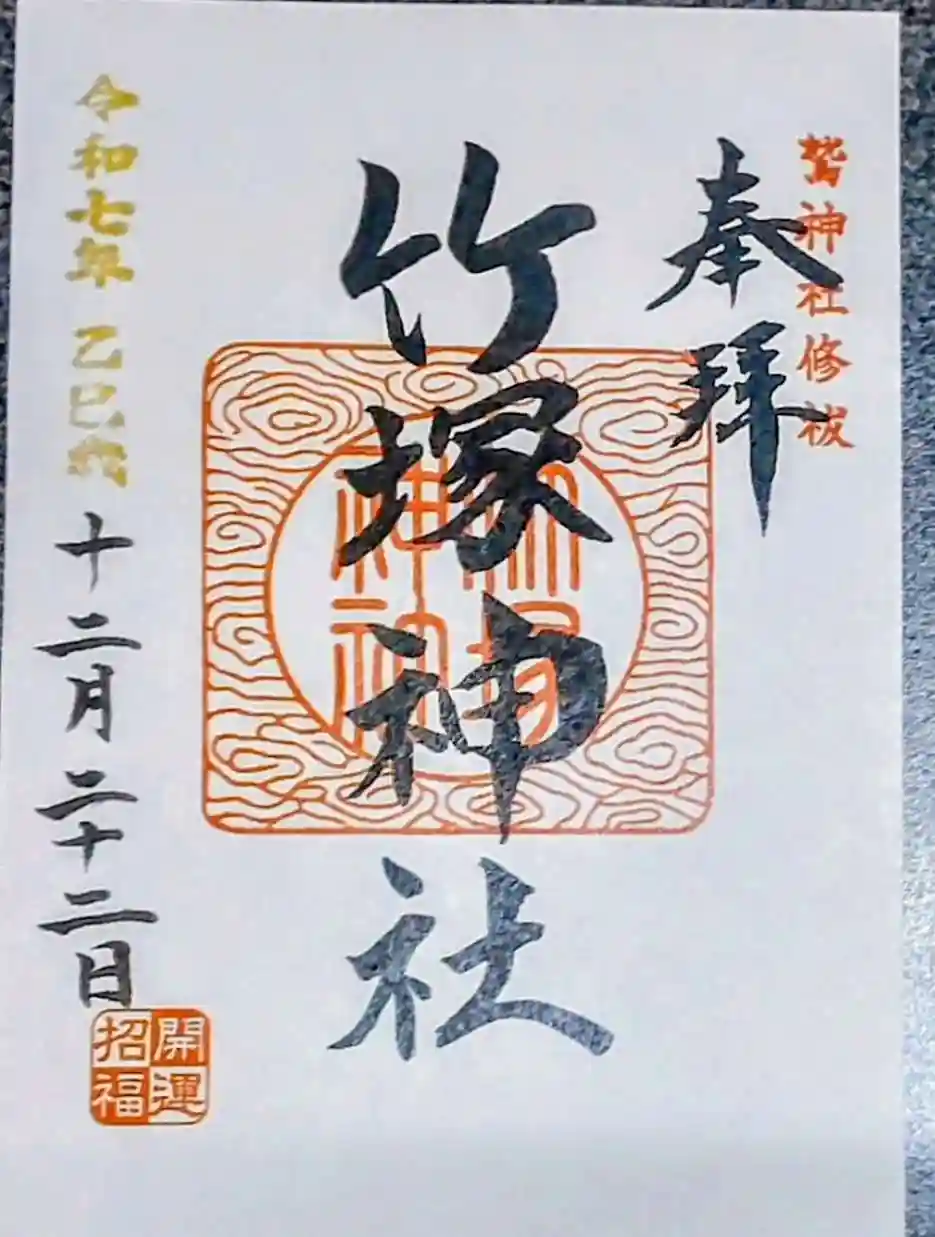 鷲神社修祓
奉拝
竹塚神社
令和七年 乙巳歳 十二月二十二日
開運
招福